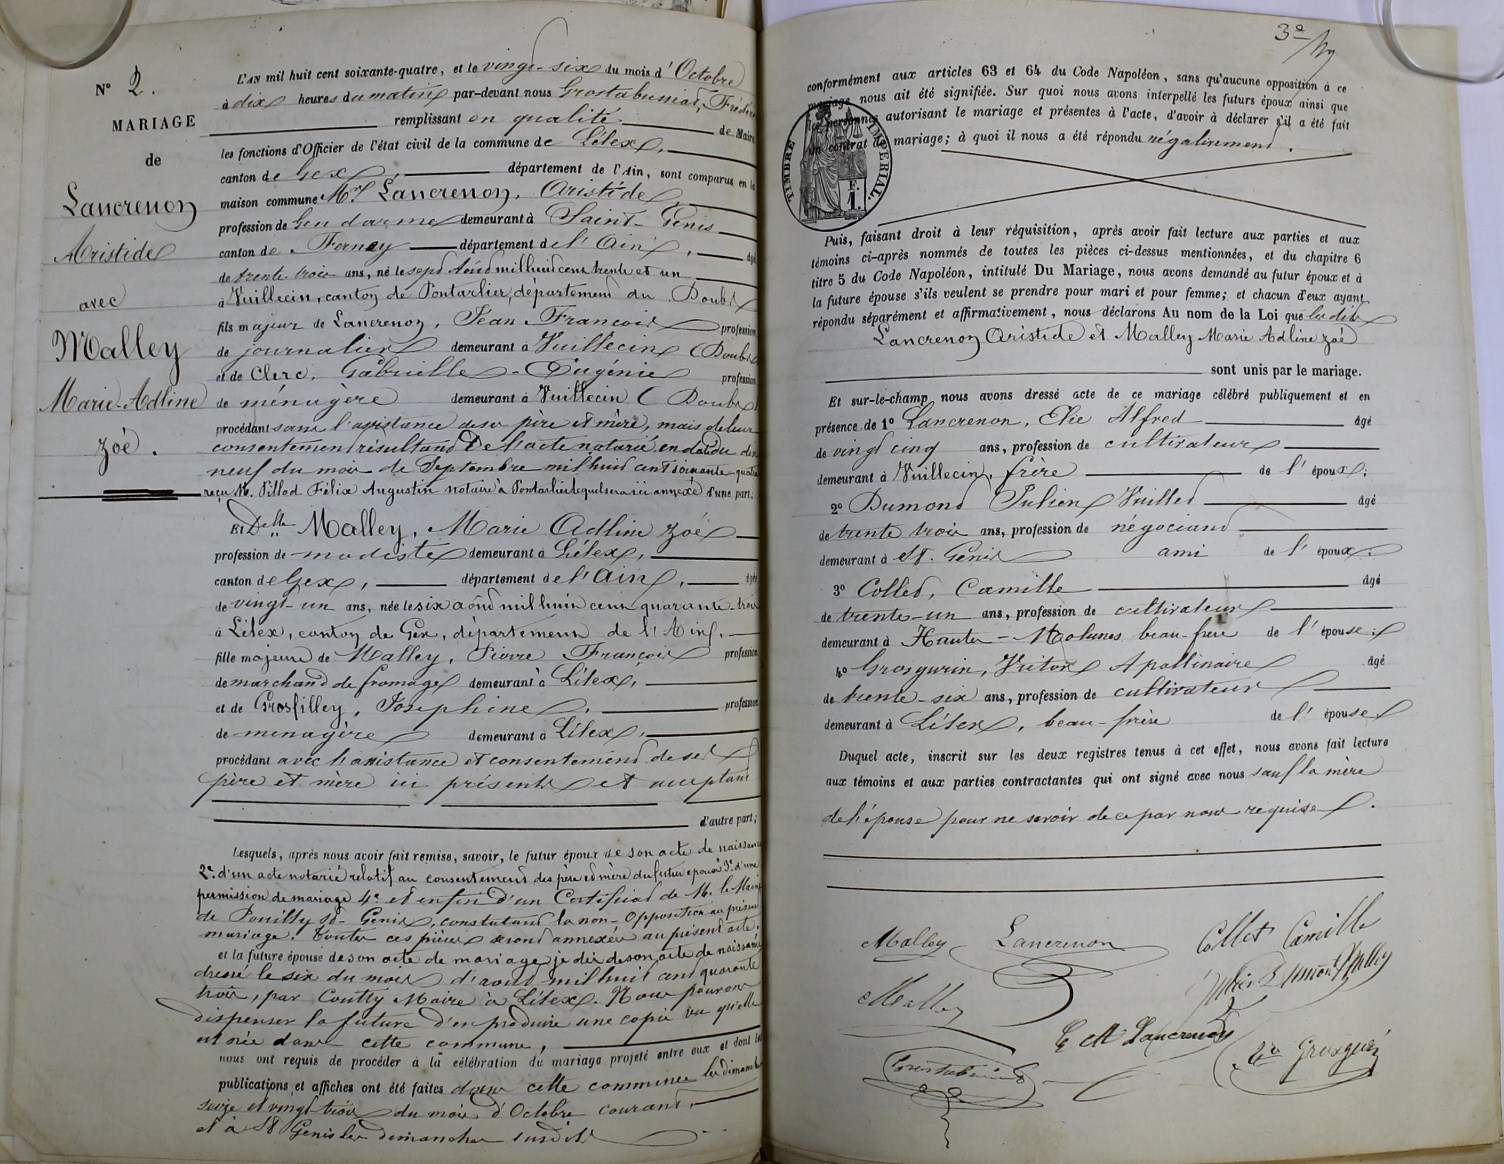 N° 2.
MARIAGE
de
Lancrenon
Aristide
avec
Malley
Marie-Adline
Zoé.
L'AN mil huit cent soixante-quatre, et le vingt-six du mois d'Octobre
à dix heures du matin par-devant nous Grostabussiat, Frédéric
remplissant en qualité de Maire
les fonctions d'Officier de l'état civil de la commune de Lélex,
canton de Gex, département de l'Ain, sont comparus en la
maison commune Mr Lancrenon, Aristide,
profession de Gendarme demeurant à Saint-Genis
canton de Ferney département de l'Ain, âgé
de trente trois ans, né le sept Août mil huit cent trente et un
à Vuillecin, canton de Pontarlier, département du Doubs
fils majeur de Lancrenon, Jean François profession
de journalier demeurant à Vuillecin (Doubs)
et de Clerc, Gabrielle-Eugénie profession
de ménagère demeurant à Vuillecin (Doubs)
procédant sans l'assistance de ses père et mère, mais de leur
consentement résultant de l'acte notarié en date du dix
neuf du mois de Septembre mil huit cent soixante-quatre
reçu M. Pillod Félix Augustin notaire à Pontarlier lequel sera ici annexé d'une part,
Et Delle Malley, Marie Adline Zoé
profession de modiste demeurant à Lélex,
canton de Gex, département de l'Ain, âgée
de vingt-un ans, née le six août mil huit cent quarante-trois
à Lélex, canton de Gex, département de l'Ain,
fille majeure de Malley, Pierre François profession
de marchand de fromages demeurant à Lélex,
et de Grosfilley, Josephine, profession
de ménagère demeurant à Lélex,
procédant avec l'assistance et consentement de ses
père et mère ici présents et acceptant
d'autre part;
Lesquels, après nous avoir fait remise, savoir, le futur époux de son acte de naissance
2° d'un acte notarié relatif au consentement des père et mère du futur époux 3° d'une
permission de mariage 4° et enfin d'un Certificat de M. le Maire
de Pouilly St-Genis, constatant la non-opposition au présent
mariage. Toutes ces pièces seront annexées au présent acte.
et la future épouse de son acte de mariage, je dis de son acte de naissance
dressé le six du mois d'août mil huit cent quarante
trois, par Coutty Maire à Lélex. Nous pouvons
dispenser la future d'en produire une copie vu qu'elle
est née dans cette commune,
nous ont requis de procéder à la célébration du mariage projeté entre eux et dont les
publications et affiches ont été faites dans cette commune les dimanches
seize et vingt trois du mois d'Octobre courant,
et à St Genis les dimanches susdits
3e
conformément aux articles 63 et 64 du Code Napoléon, sans qu'aucune opposition à ce
mariage nous ait été signifiée. Sur quoi nous avons interpellé les futurs époux ainsi que
les personnes autorisant le mariage et présentes à l'acte, d'avoir à déclarer s'il a été fait
un contrat de mariage; à quoi il nous a été répondu négativement.
TIMBRE IMPÉRIAL.
F. 1.
Puis, faisant droit à leur réquisition, après avoir fait lecture aux parties et aux
témoins ci-après nommés de toutes les pièces ci-dessus mentionnées, et du chapitre 6
titre 5 du Code Napoléon, intitulé Du Mariage, nous avons demandé au futur époux et à
la future épouse s'ils veulent se prendre pour mari et pour femme; et chacun d'eux ayant
répondu séparément et affirmativement, nous déclarons Au nom de la Loi que lesdits
Lancrenon Aristide et Malley Marie Adline Zoé
sont unis par le mariage.
Et sur-le-champ nous avons dressé acte de ce mariage célébré publiquement et en
présence de 1° Lancrenon, Elie Alfred âgé
de vingt cinq ans, profession de cultivateur
demeurant à Vuillecin, frère de l'époux;
2° Dumond Julien Vuilled âgé
de trente trois ans, profession de négociant
demeurant à St. Genis ami de l'époux;
3° Colled, Camille âgé
de trente-un ans, profession de cultivateur
demeurant à Hautes-Molunes beau-frère de l'épouse;
4° Grosgurin, Victor Apollinaire âgé
de trente-six ans, profession de cultivateur
demeurant à Lélex, beau-frère de l'épouse
Duquel acte, inscrit sur les deux registres tenus à cet effet, nous avons fait lecture
aux témoins et aux parties contractantes qui ont signé avec nous sauf la mère
de l'épouse pour ne savoir de ce par nous requise.
Malley Lancrenon Collet Camille
Malley Julien Dumont
E A Lancrenon
Grosgurin